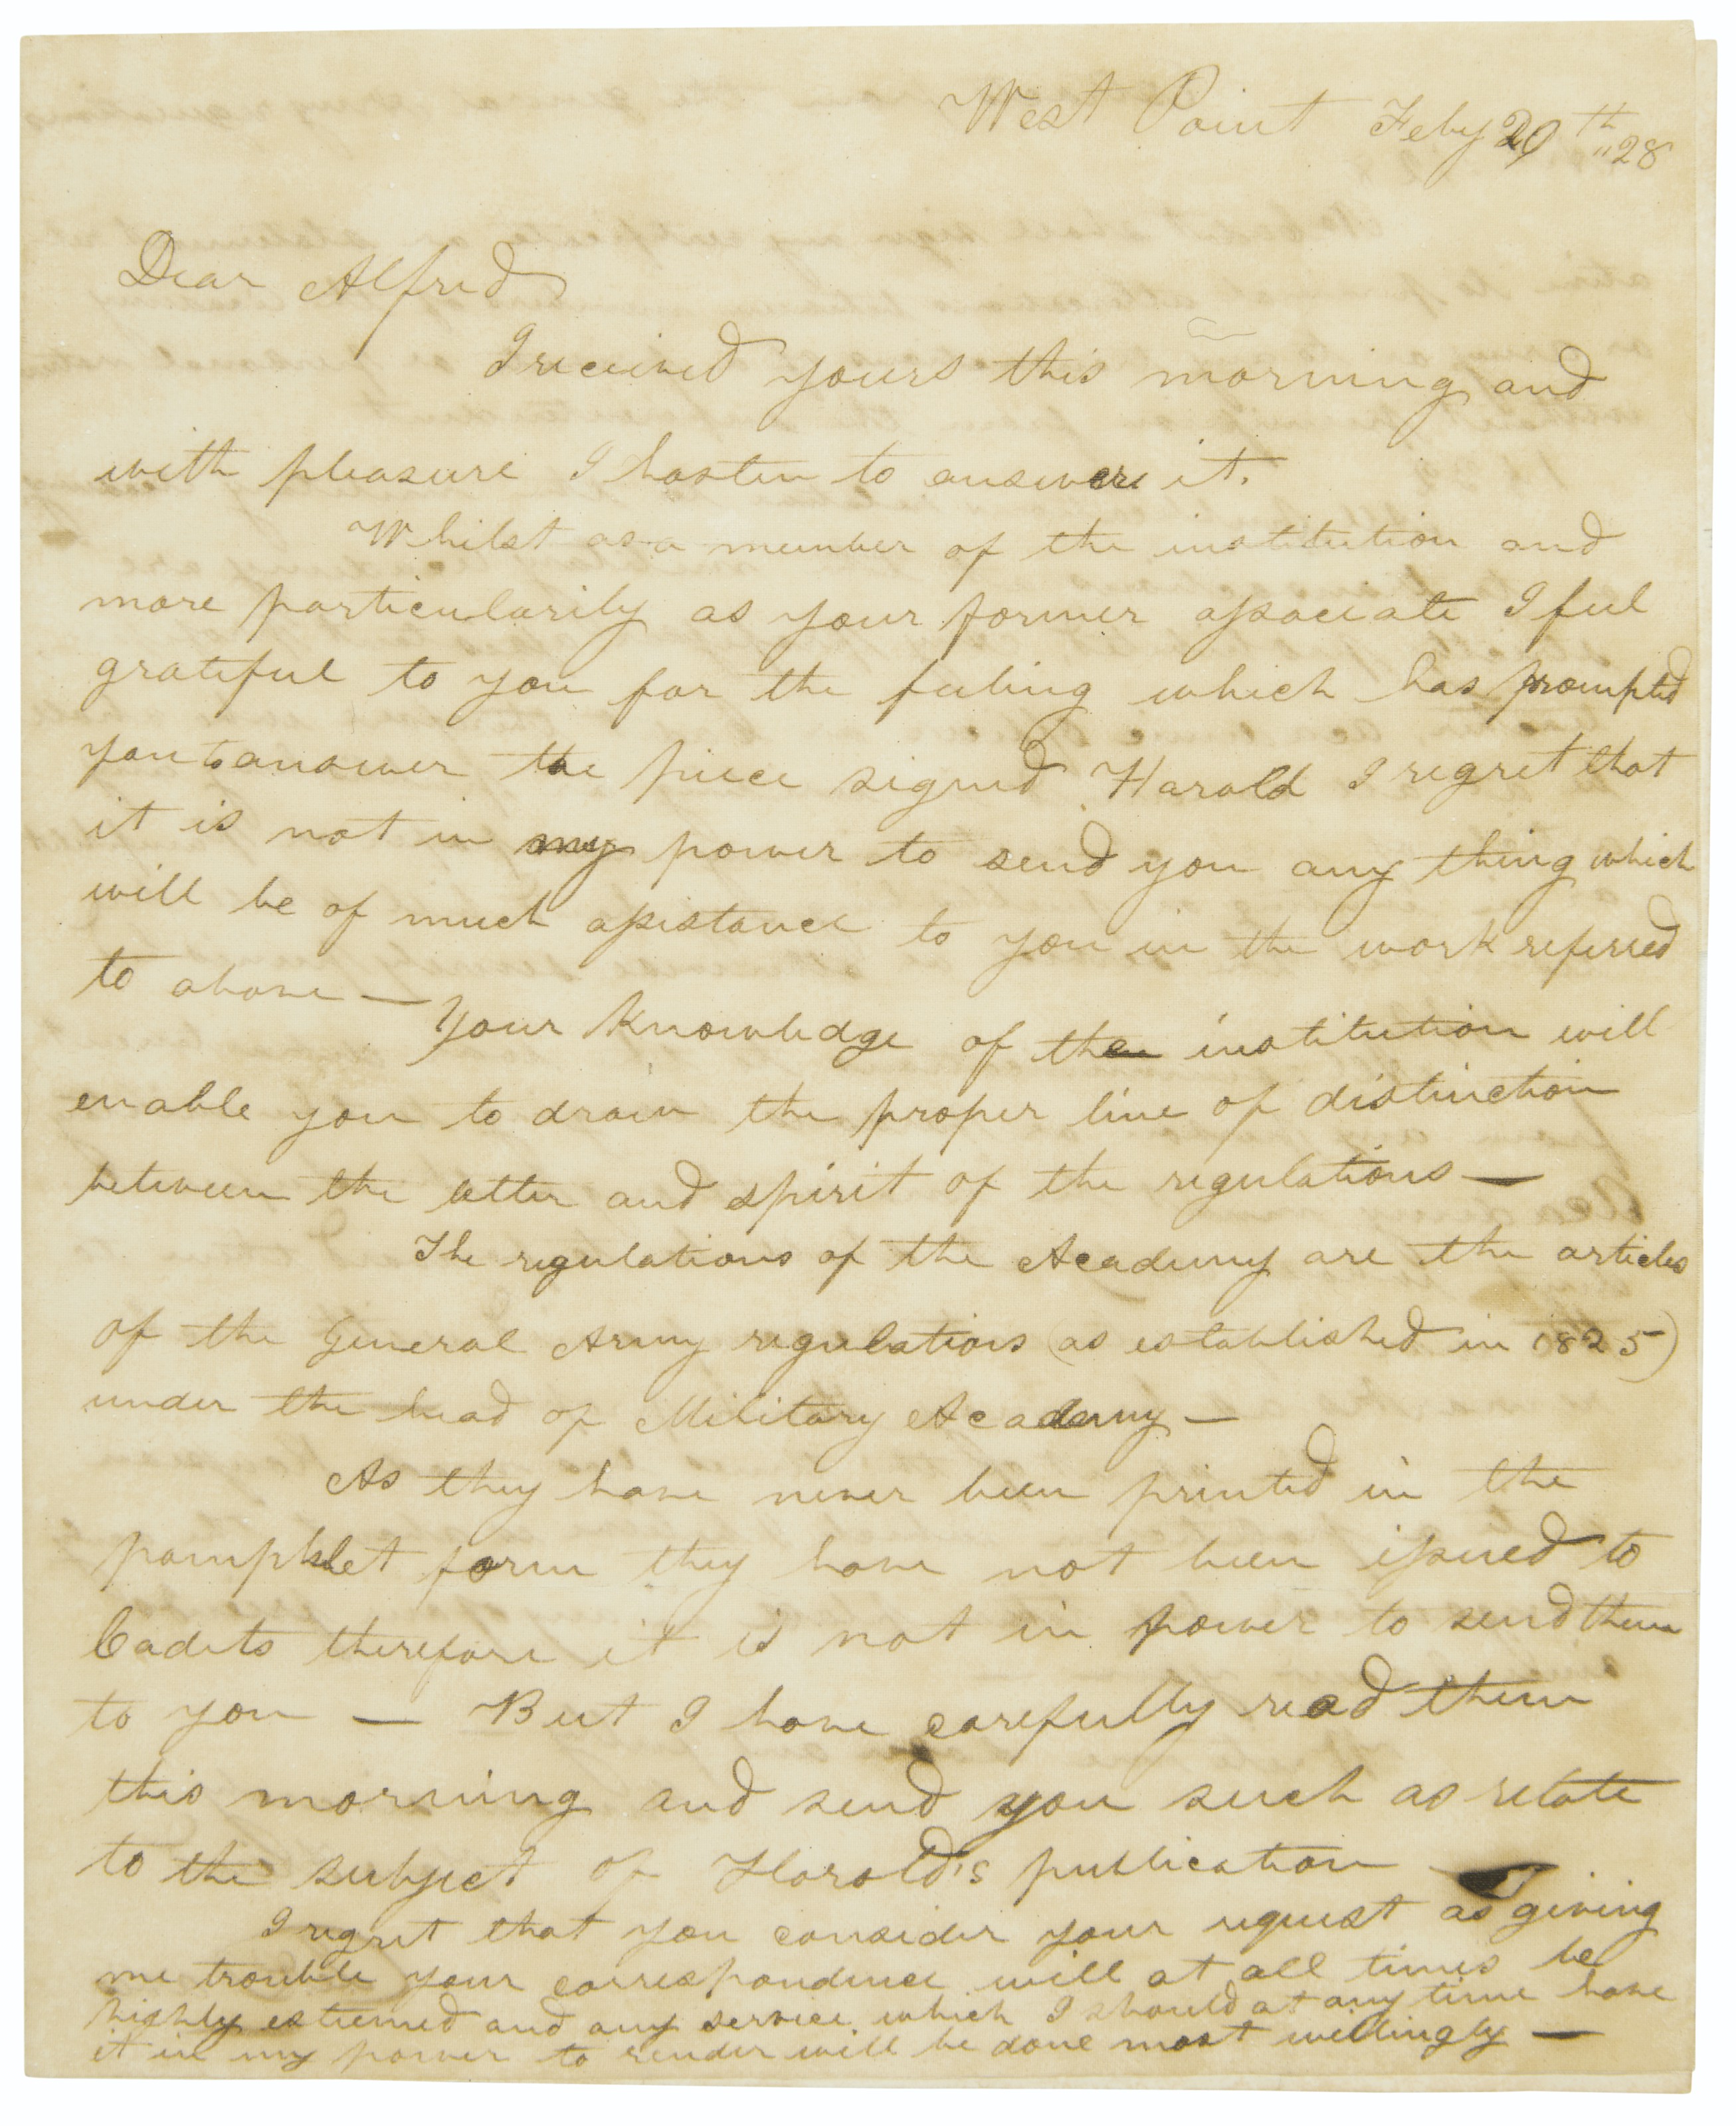 West Point Feby 29th "28
Dear Alfred
I received yours this morning and
with pleasure I hasten to answer it.
Whilst as a member of the institution and
more particularily as your former associate I feel
grateful to you for the feeling which has prompted
you to answer the piece signed Harold I regret that
it is not in my power to send you any thing which
will be of much assistance to you in the work referred
to above — Your knowledge of the institution will
enable you to draw the proper line of distinction
between the letter and spirit of the regulations —
The regulations of the Academy are the articles
of the General Army regulations (as established in 1825)
under the head of Military Academy —
As they have never been printed in the
pamphlet form they have not been issued to
Cadets therefore it is not in power to send them
to you — But I have carefully read them
this morning and send you such as relate
to the subject of Harold's publication —
I regret that you consider your request as giving
me trouble your correspondence will at all times be
highly esteemed and any service which I should at any time have
it in my power to render will be done most willingly —